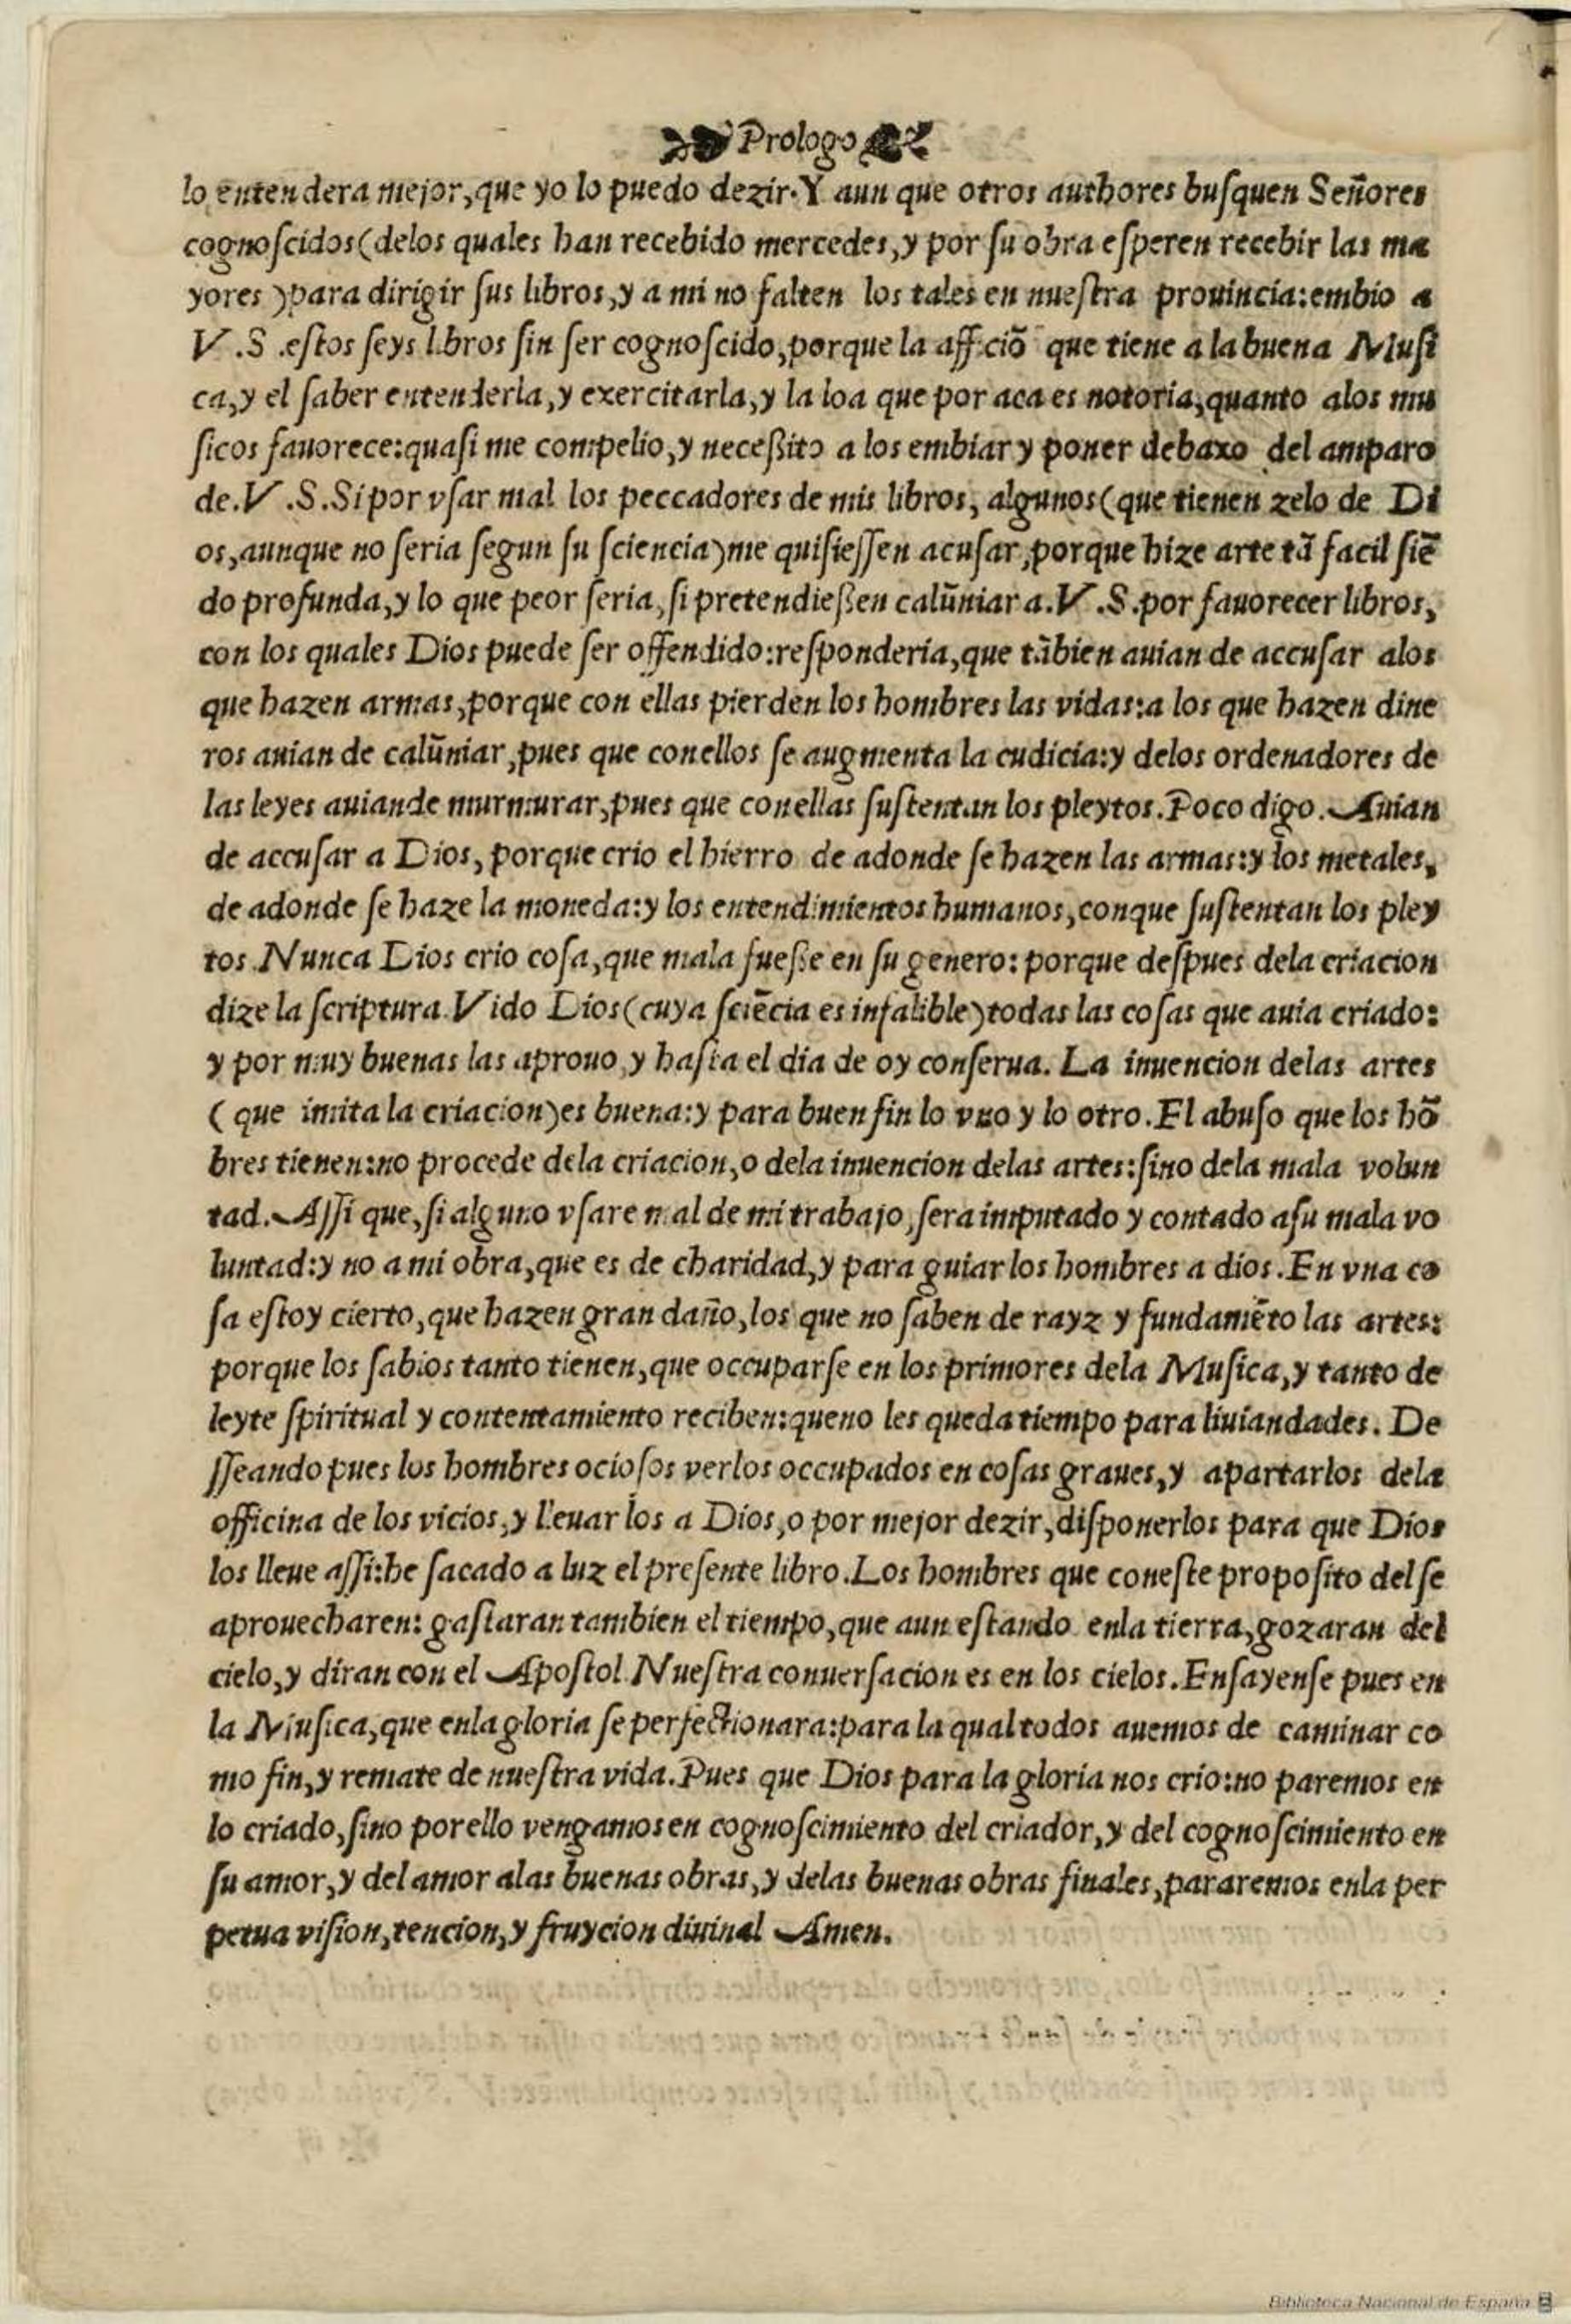 Prologo
lo entendera mejor, que yo lo puedo dezir. Y aun que otros authores buſquen Señores
cognoſcidos (delos quales han recebido mercedes, y por ſu obra eſperen recebir las ma
yores) para dirigir ſus libros, y a mi no falten los tales en nueſtra prouincia: embio a
V.S. eſtos ſeys libros ſin ſer cognoſcido, porque la afficiõ que tiene a la buena Muſi
ca, y el ſaber entenderla, y exercitarla, y la loa que por aca es notoria, quanto alos mu
ſicos fauorece: quaſi me compelio, y neceßito a los embiar y poner debaxo del amparo
de. V.S. Si por vſar mal los peccadores de mis libros, algunos (que tienen zelo de Di
os, aunque no ſeria ſegun ſu ſciencia) me quiſieſſen acuſar, porque hize arte tã facil ſiẽ
do profunda, y lo que peor ſeria, ſi pretendießen calũniar a. V.S. por fauorecer libros,
con los quales Dios puede ſer offendido: reſponderia, que tãbien auian de accuſar alos
que hazen armas, porque con ellas pierden los hombres las vidas: a los que hazen dine
ros auian de calũniar, pues que conellos ſe augmenta la cudicia: y delos ordenadores de
las leyes auiande murmurar, pues que conellas ſuſtentan los pleytos. Poco digo. Auian
de accuſar a Dios, porque crio el hierro de adonde ſe hazen las armas: y los metales,
de adonde ſe haze la moneda: y los entendimientos humanos, conque ſuſtentan los pley
tos. Nunca Dios crio coſa, que mala fueße en ſu genero: porque deſpues dela criacion
dize la ſcriptura. Vido Dios (cuya ſciẽcia es infalible) todas las coſas que auia criado:
y por muy buenas las aprouo, y haſta el dia de oy conſerua. La inuencion delas artes
(que imita la criacion) es buena: y para buen fin lo vno y lo otro. El abuſo que los hõ
bres tienen: no procede dela criacion, o dela inuencion delas artes: ſino dela mala volun
tad. Aſſi que, ſi alguno vſare mal de mi trabajo, ſera imputado y contado aſu mala vo
luntad: y no a mi obra, que es de charidad, y para guiar los hombres a dios. En vna co
ſa eſtoy cierto, que hazen gran daño, los que no ſaben de rayz y fundamẽto las artes:
porque los ſabios tanto tienen, que occuparſe en los primores dela Muſica, y tanto de
leyte ſpiritual y contentamiento reciben: queno les queda tiempo para liuiandades. De
ſſeando pues los hombres ocioſos verlos occupados en coſas graues, y apartarlos dela
officina de los vicios, y lleuarlos a Dios, o por mejor dezir, diſponerlos para que Dios
los lleue aſſi: he ſacado a luz el preſente libro. Los hombres que coneſte propoſito del ſe
aprouecharen: gaſtaran tambien el tiempo, que aun eſtando enla tierra, gozaran del
cielo, y diran con el Apoſtol. Nueſtra conuerſacion es en los cielos. Enſayenſe pues en
la Muſica, que enla gloria ſe perfectionara: para la qual todos auemos de caminar co
mo fin, y remate de nueſtra vida. Pues que Dios para la gloria nos crio: no paremos en
lo criado, ſino porello vengamos en cognoſcimiento del criador, y del cognoſcimiento en
ſu amor, y del amor alas buenas obras, y delas buenas obras finales, pararemos enla per
petua viſion, tencion, y fruycion diuinal Amen.
Biblioteca Nacional de España